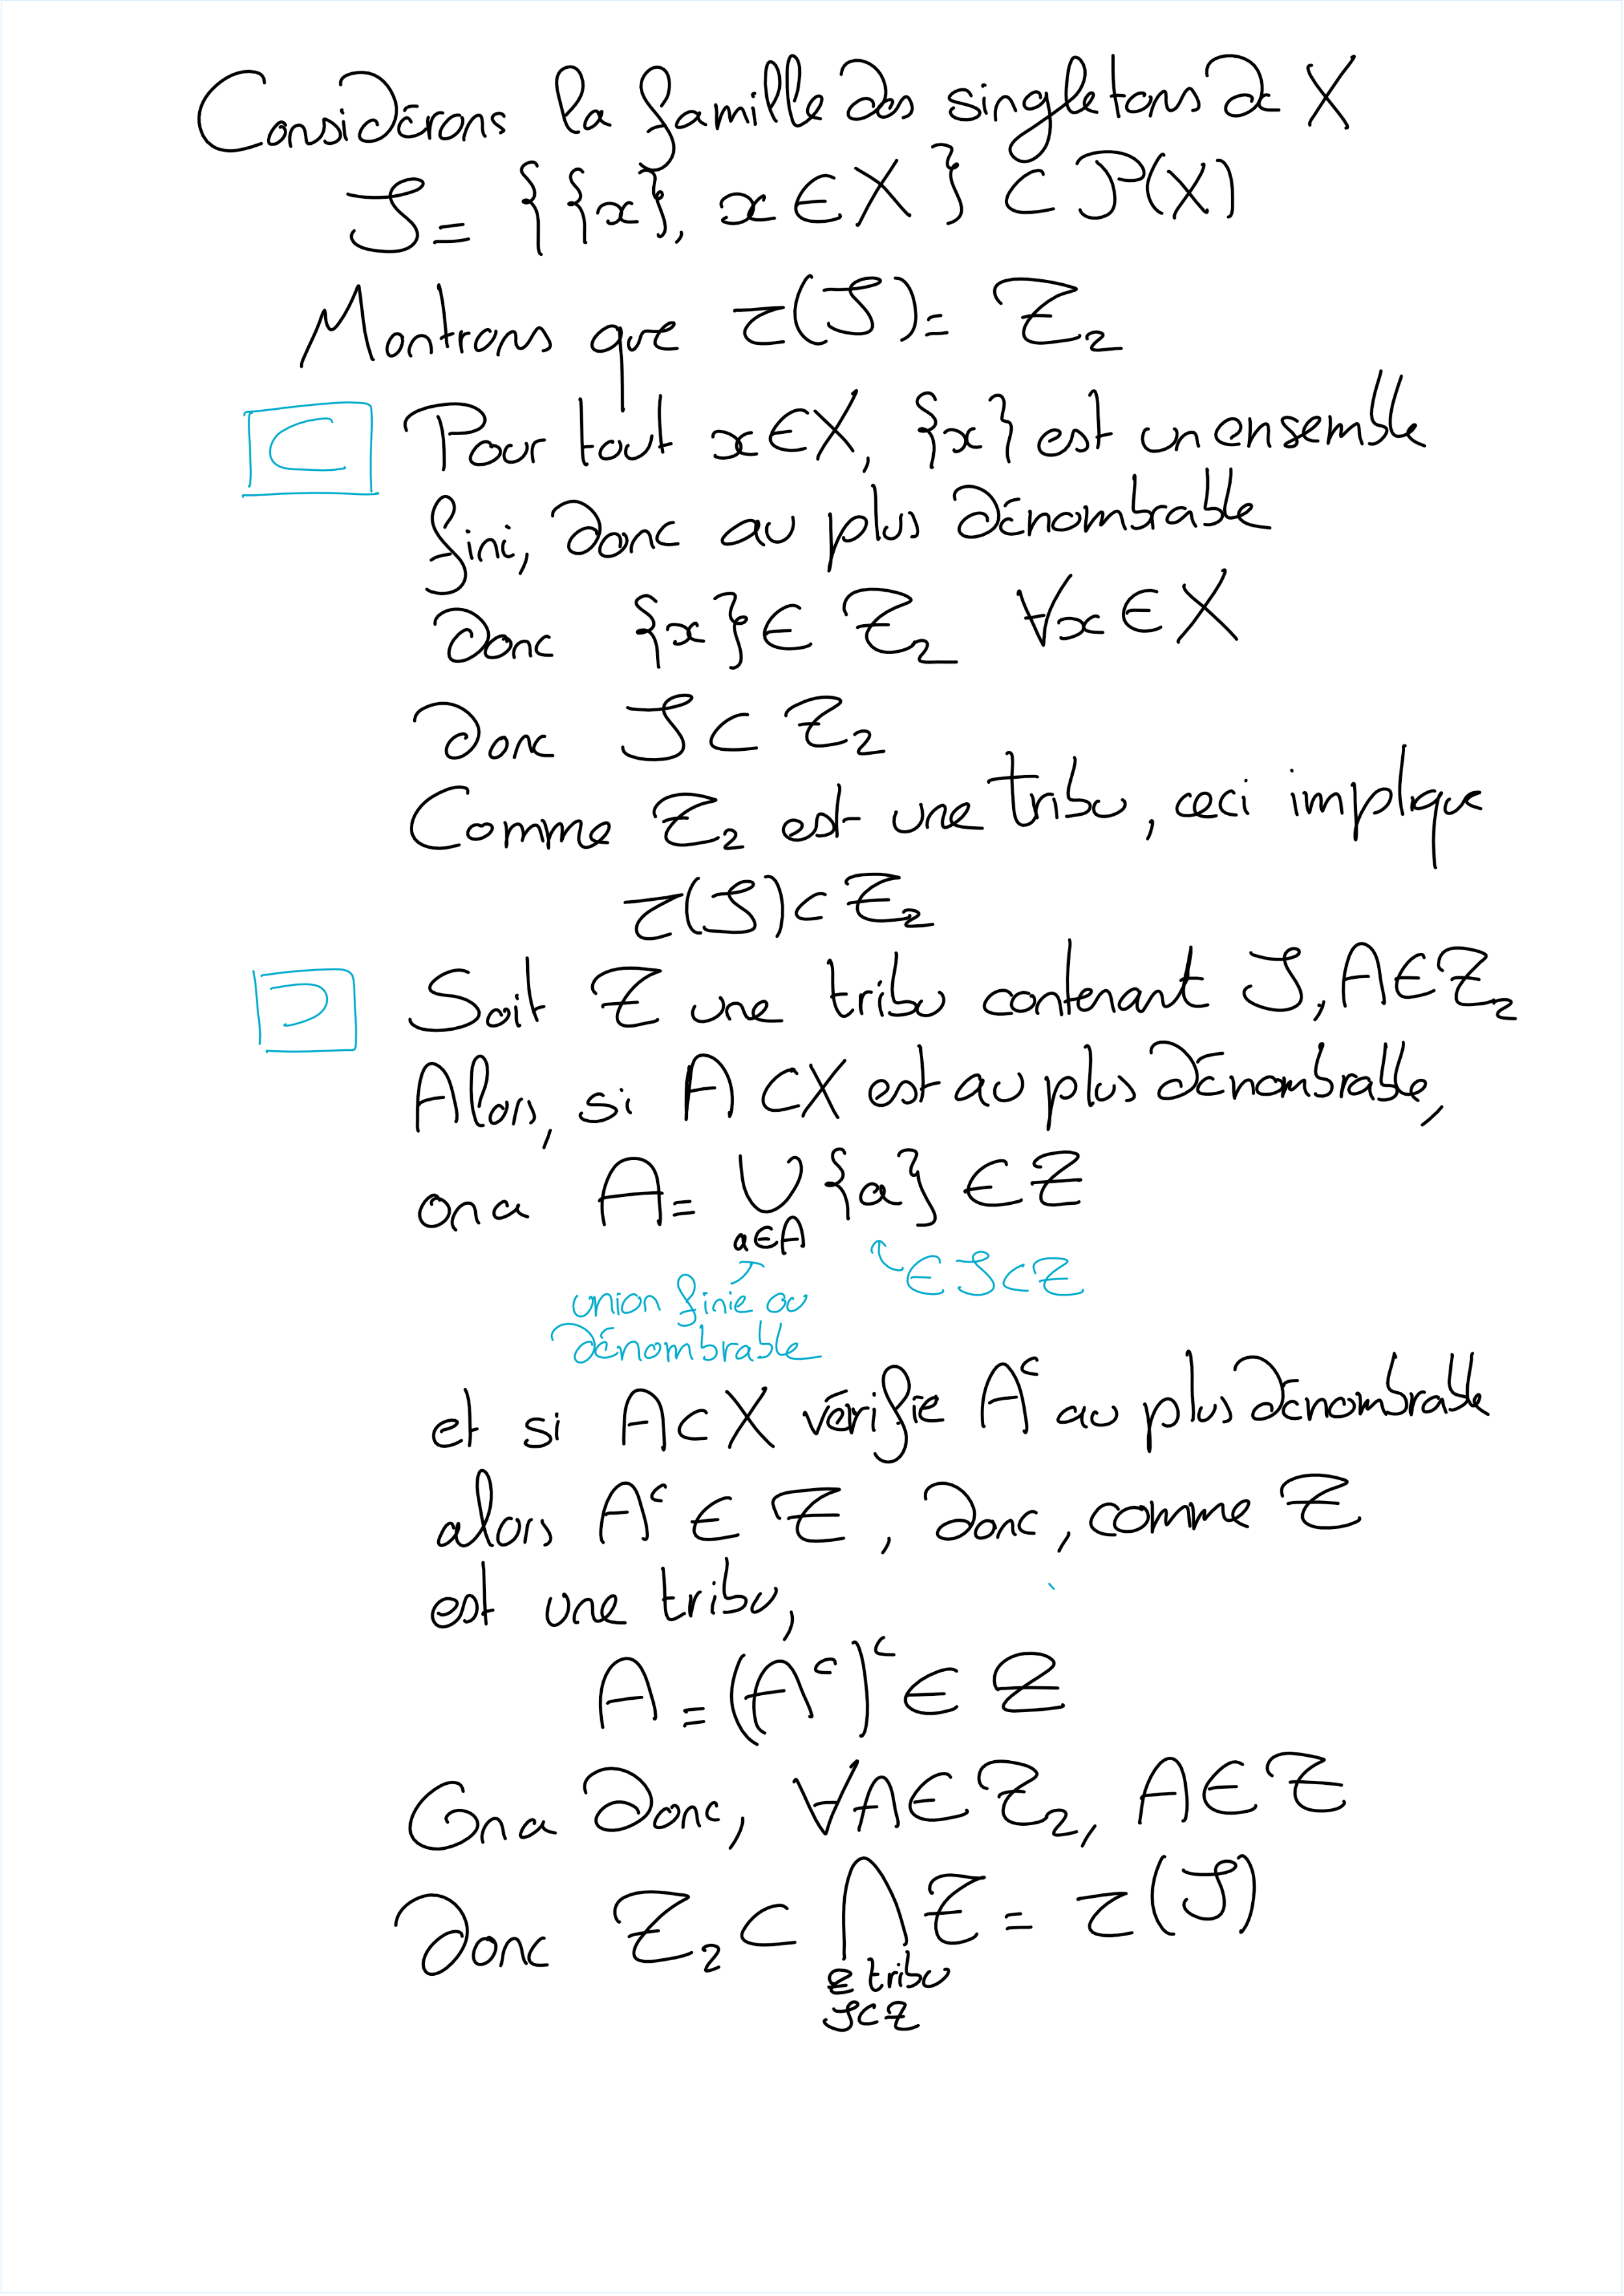 Considérons la famille des singletons de X
S = {{x}, x ∈ X} ⊂ P(X)
Montrons que τ(S) = Ƶ₂
⊂ Pour tout x ∈ X, {x} est un ensemble
fini, donc au plus dénombrable
donc {x} ∈ Ƶ₂ ∀x ∈ X
donc S ⊂ Ƶ₂
Comme Ƶ₂ est une tribu, ceci implique
τ(S) ⊂ Ƶ₂
⊃ Soit Ƶ une tribu contenant S, A ∈ Ƶ₂
Alors, si A ⊂ X est au plus dénombrable,
on a A = ∪ {a} ∈ Ƶ
a∈A
∈ S ⊂ Ƶ
union finie ou
dénombrable
et si A ⊂ X vérifie Aᶜ au plus dénombrable
alors Aᶜ ∈ Ƶ, donc, comme Ƶ
est une tribu,
A = (Aᶜ)ᶜ ∈ Ƶ
On a donc, ∀A ∈ Ƶ₂, A ∈ Ƶ
donc Ƶ₂ ⊂ ∩ Ƶ = τ(S)
Ƶ tribu
S ⊂ Ƶ